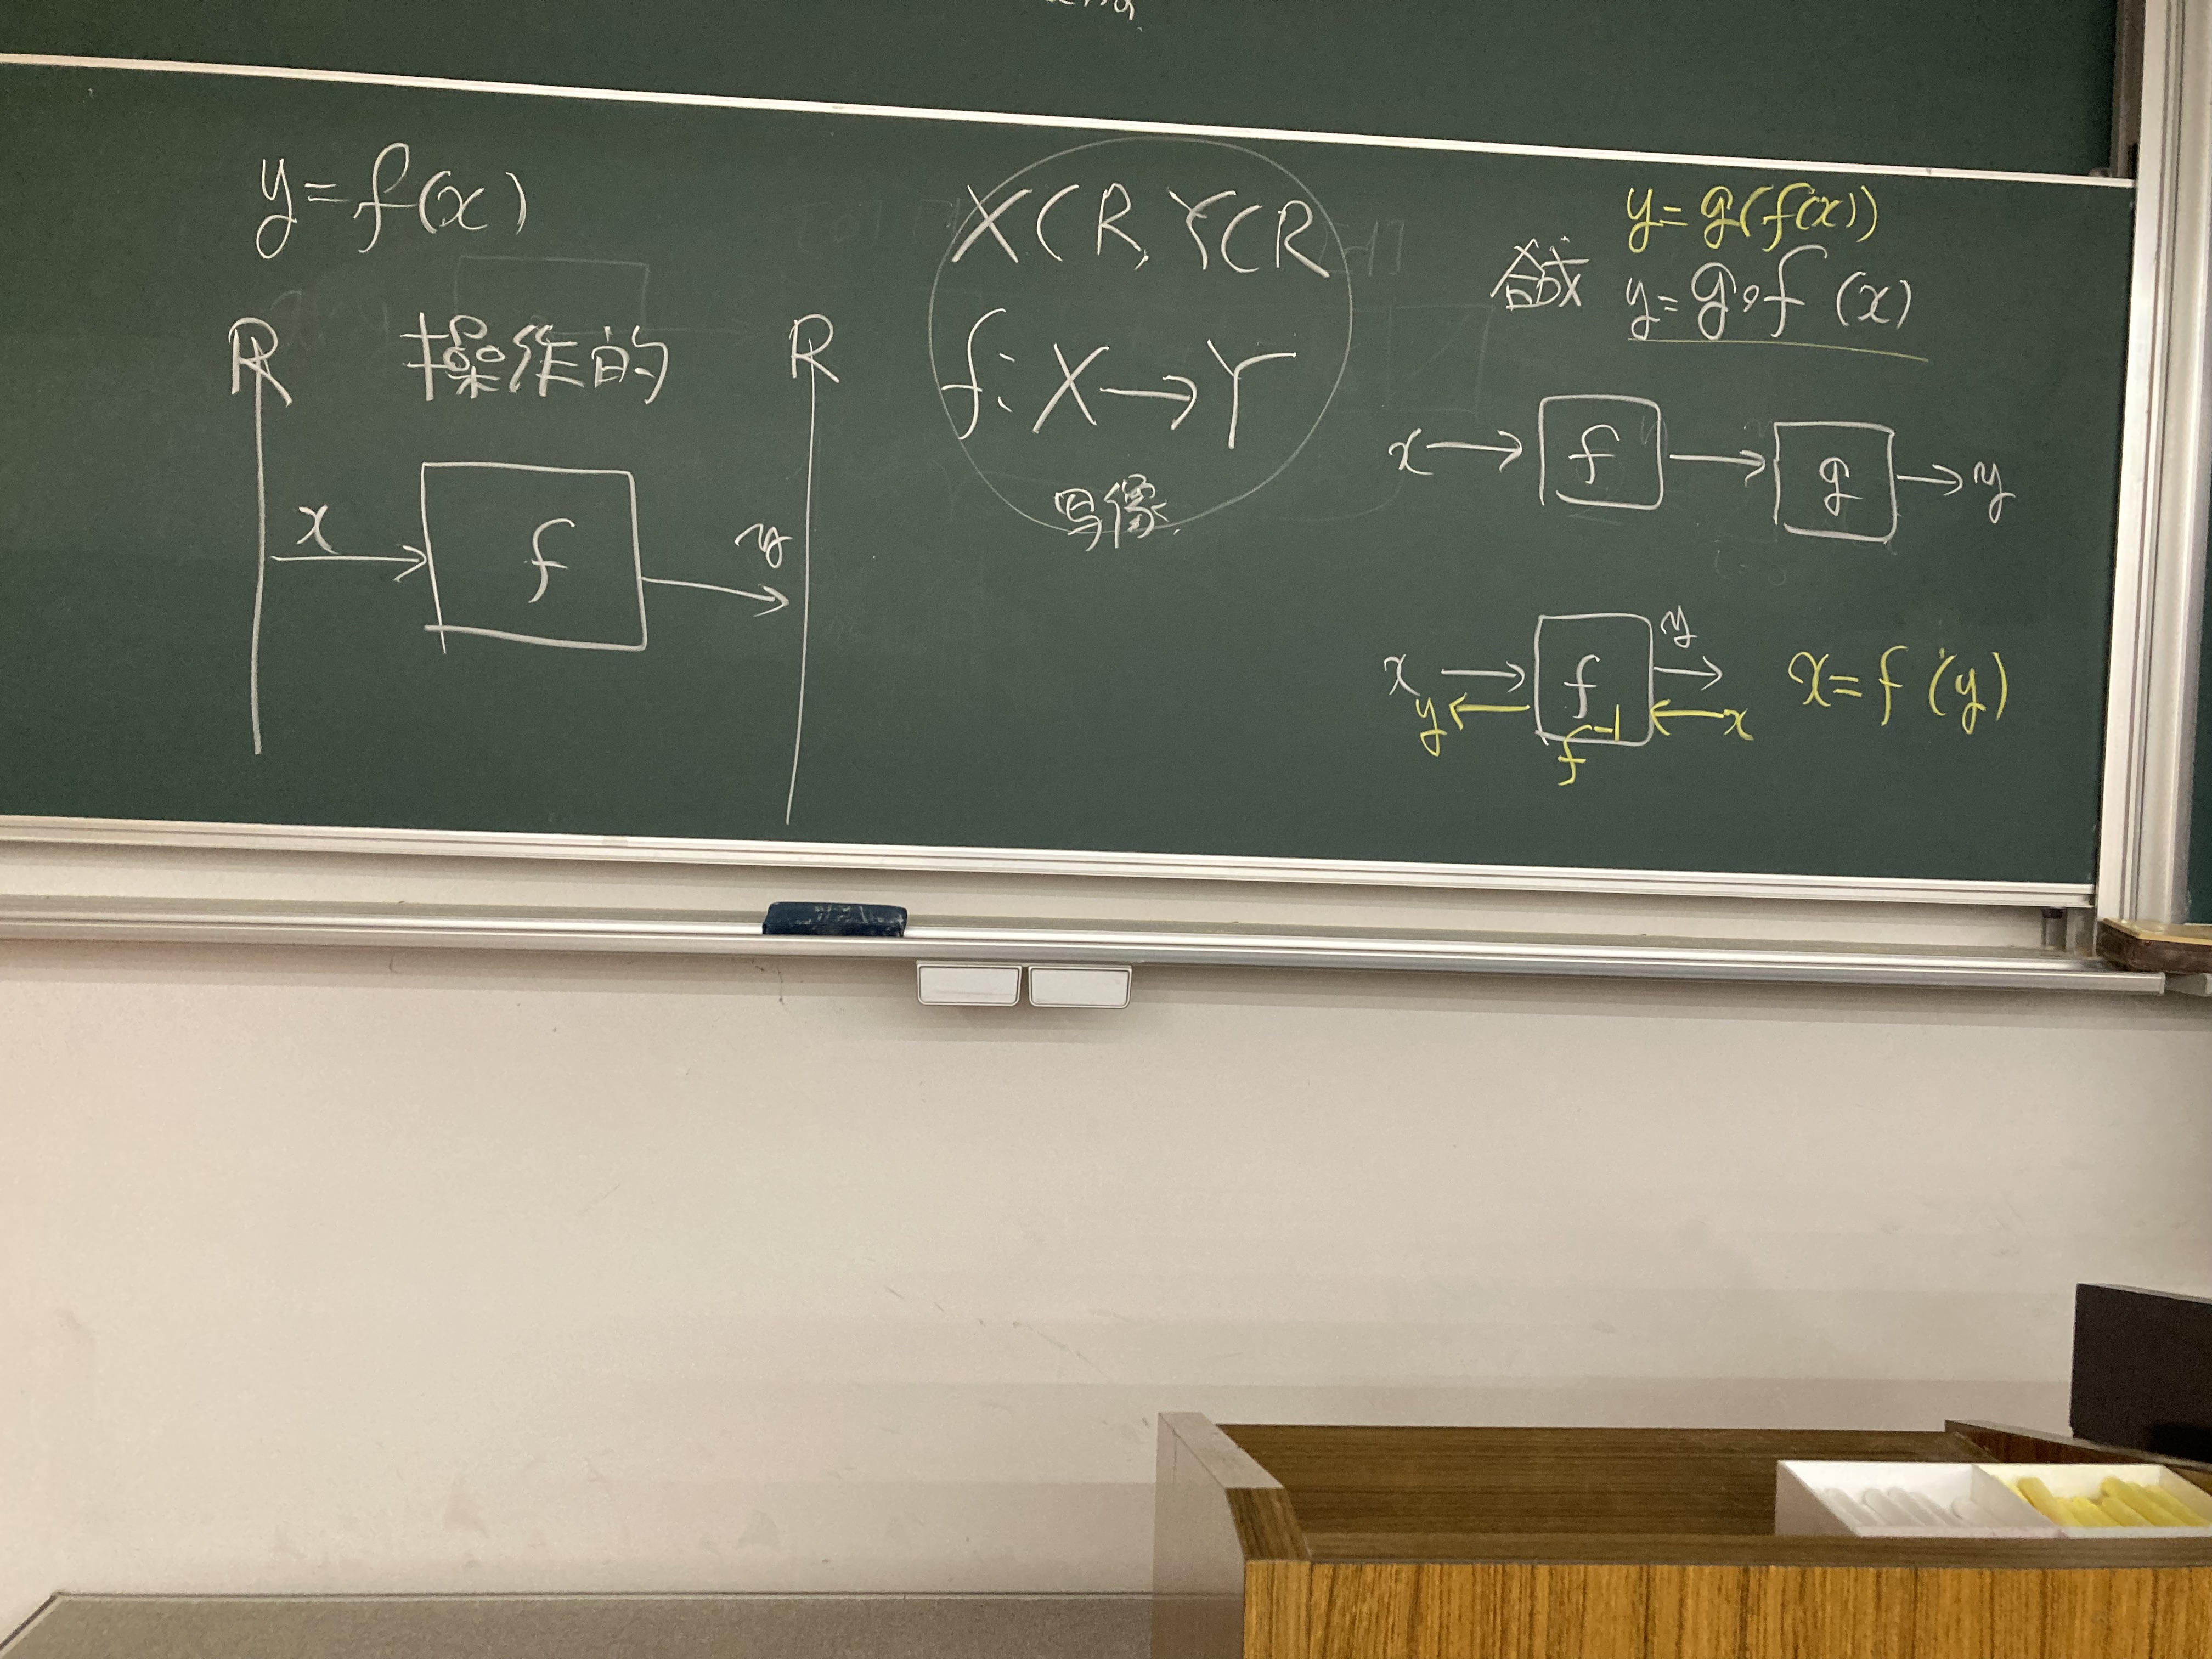 y=f(x)
R 操作的 R
x f y
X⊂R, Y⊂R
f: X→Y
写像
y=g(f(x))
合成 y=g∘f(x)
x→ f → g →y
x→ f → y
y← f⁻¹ ←x
x=f(y)